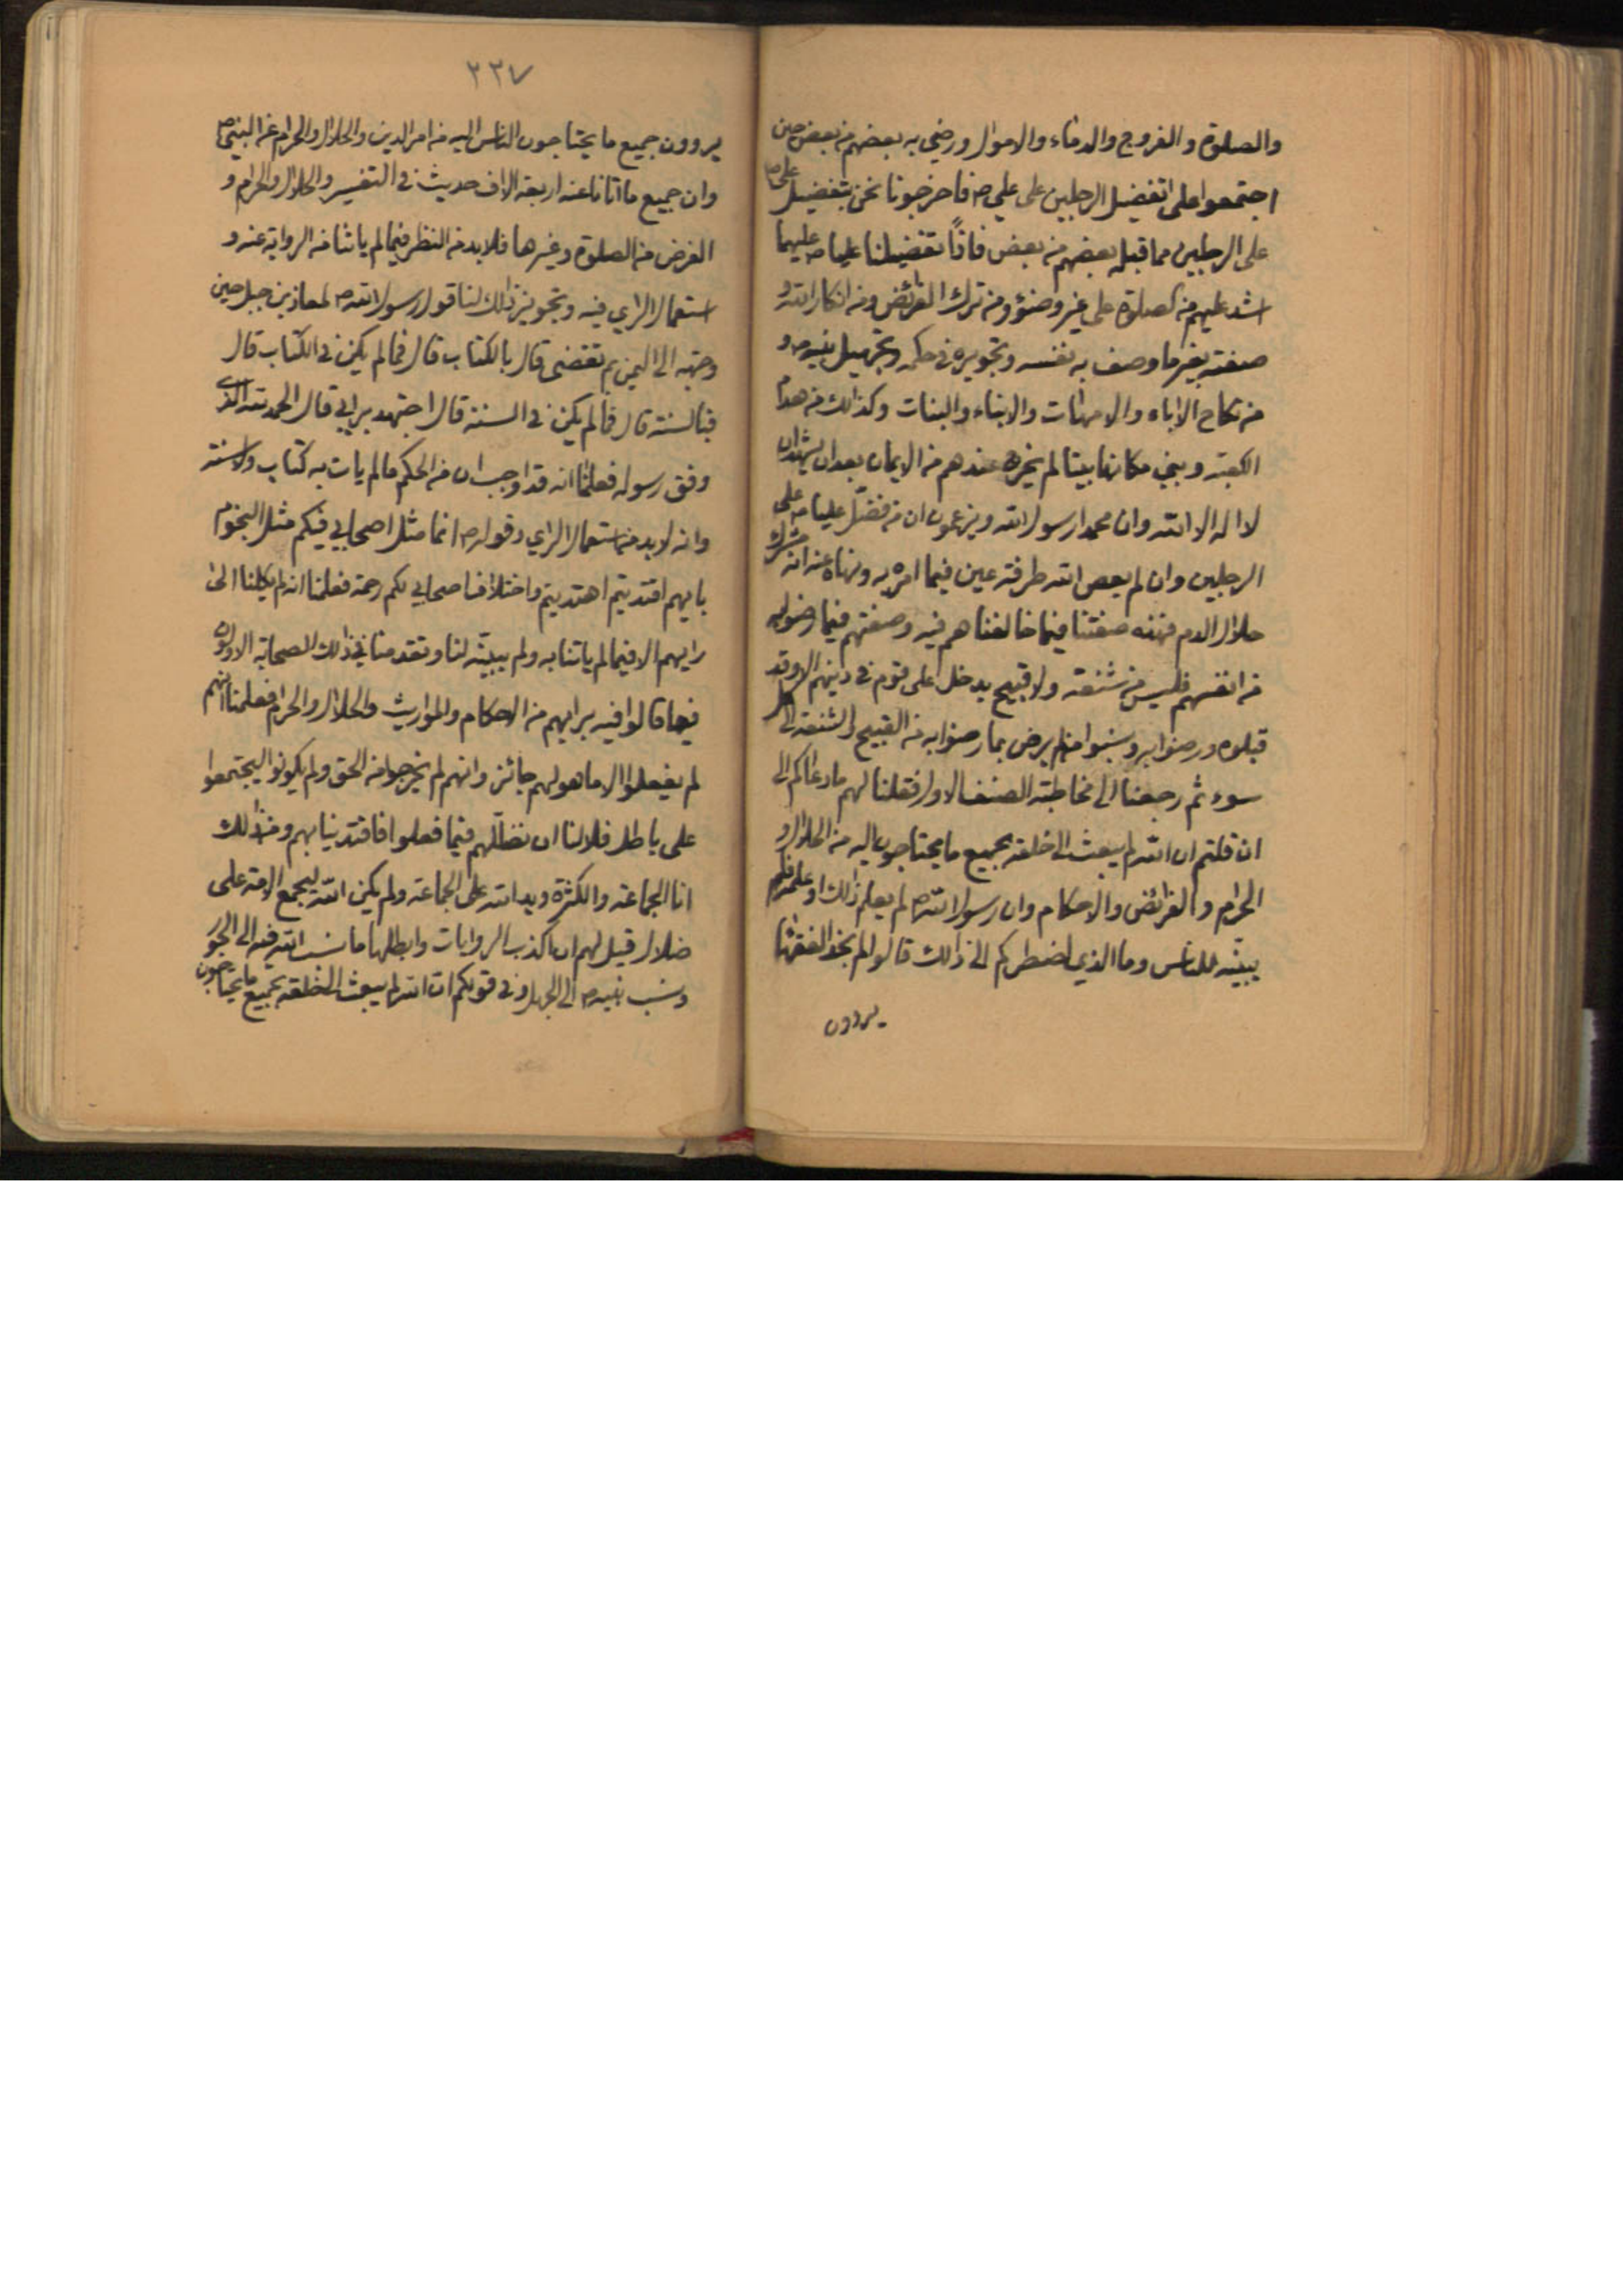 والصلوة والفروج والدماء والاموال ورضي به بعضهم من بعض حين
اجتمعوا على تفضيل الرجلين على علي ص فاخرجونا نحن بتفضيل علي ص
على الرجلين مما قبله بعضهم من بعض فاذاً تفضيلنا عليا ص عليهما
اشد عليهم من الصلوة على غير وضوء ومن ترك الفرائض ومن انكار الله و
صفته بغير ما وصف به نفسه وتجويره في حكمه وتجهيل نبيه ص و
من نكاح الاباء والامهات والابناء والبنات وكذلك من هدم
الكعبة وبنى مكانها بيتا لم يخرجه عندهم من الايمان بعد ان يشهد ان
لا اله الا الله وان محمدا رسول الله ويزعمون ان من فضّل عليا ص على
الرجلين وان لم يعص الله طرفة عين فيما امره به ونهاه عنه انه مشرك
حلال الدم فهذه صفتنا فيما خالفناهم فيه وصفتهم فيما رضوا به
من انفسهم فليس من شنعة ولا قبيح يدخل على قوم في دينهم الا وقد
قبلوه ورضوا به ونسبوا من لم يرض بما رضوا به من القبيح والشنعة الى كل
سوء ثم رجعنا الى مخاطبة الصنف الاول فقلنا لهم ما دعاكم الى
ان قلتم ان الله لم يبعث الى خلقه بجميع ما يحتاجون اليه من الحلال و
الحرام والفرائض والاحكام وان رسول الله ص لم يعلم ذلك او علمه فلم
يبينه للناس وما الذي اضطركم الى ذلك قالوا لم نجد الفقهاء
يروون
٢٣٧
يروون جميع ما يحتاجون الناس اليه من امر الدين والحلال والحرام عن النبي ص
وان جميع ما اتانا عنه اربعة الاف حديث في التفسير والحلال والحرام و
الفرض من الصلوة وغيرها فلا بد من النظر فيما لم ياتنا من الرواية عنه و
استعمال الراي فيه وتجويز ذلك لنا قول رسول الله ص لمعاذ بن جبل حين
وجهه الى اليمن بم تقضى قال بالكتاب قال فما لم يكن في الكتاب قال
فبالسنة قال فما لم يكن في السنة قال اجتهد برايي قال الحمد لله الذي
وفق رسوله فعلمنا انه قد اوجب ان من الحكم ما لم يات به كتاب ولا سنة
وانه لا بد من استعمال الراي وقوله ص انما مثل اصحابي فيكم مثل النجوم
بايهم اقتديتم اهتديتم واختلاف اصحابي لكم رحمة فعلمنا انه لم يكلنا الى
رايهم الا فيما لم ياتنا به ولم يبينه لنا وتقدمنا في ذلك الصحابة الاولون
فيما قالوا فيه برايهم من الاحكام والمواريث والحلال والحرام فعلمنا انهم
لم يفعلوا الا ما هو لهم جائز وانهم لم يخرجوا من الحق ولم يكونوا ليجتمعوا
على باطل فلا لنا ان نضلّلهم فيما فعلوا فاقتدينا بهم ومن ذلك
انا الجماعة والكثرة ويد الله على الجماعة ولم يكن الله ليجمع الامة على
ضلال قيل لهم ان اكذب الروايات وابطلها ما نسب الله فيه الى الجور
ونسب نبيه ص الى الجهل وفي قولكم ان الله لم يبعث الى خلقه بجميع ما يحتاجون